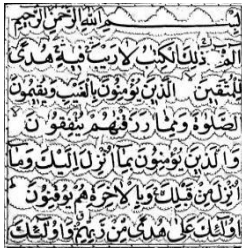 بِسْمِ اللهِ الرَّحْمٰنِ الرَّحِيْمِ
الٓمّٓ ذٰلِكَ الْكِتٰبُ لَا رَيْبَ فِيْهِ هُدًى
لِّلْمُتَّقِيْنَ الَّذِيْنَ يُؤْمِنُوْنَ بِالْغَيْبِ وَيُقِيْمُوْنَ
الصَّلٰوةَ وَمِمَّا رَزَقْنٰهُمْ يُنْفِقُوْنَ
وَالَّذِيْنَ يُؤْمِنُوْنَ بِمَآ اُنْزِلَ اِلَيْكَ وَمَآ
اُنْزِلَ مِنْ قَبْلِكَ وَبِالْاٰخِرَةِ هُمْ يُوْقِنُوْنَ
اُولٰٓئِكَ عَلٰى هُدًى مِّنْ رَّبِّهِمْ وَاُولٰٓئِكَ